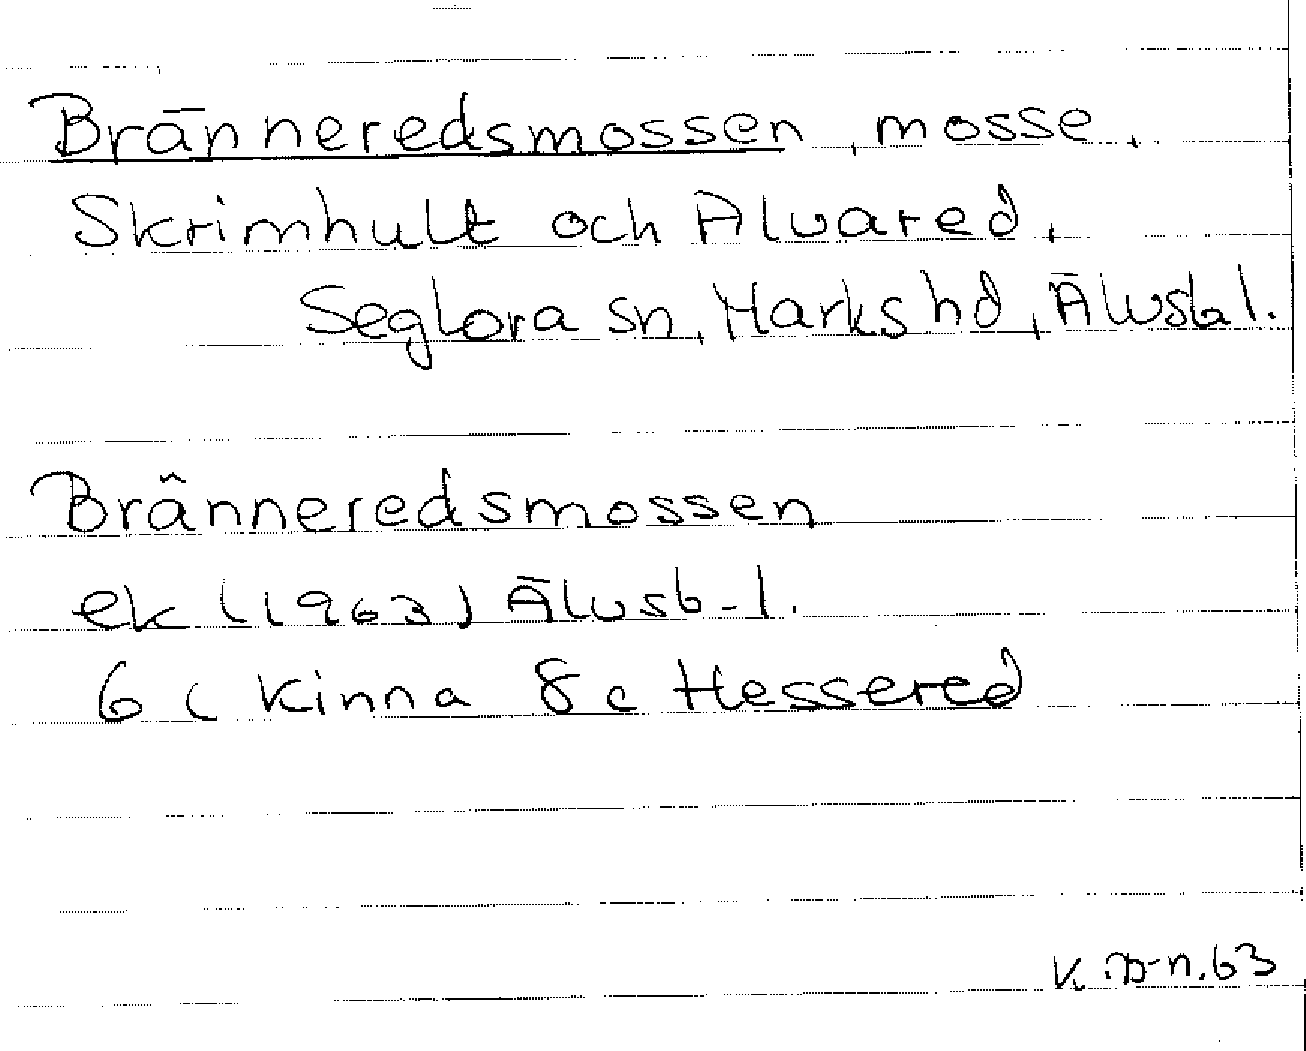 Bränneredsmossen, mosse,
Skrimhult och Alvared,
Seglora sn, Marks hd, Älvsb l.
Bränneredsmossen
ek (1963) Älvsb-l.
6c Kinna 8c Hessered
K. B-n. 63